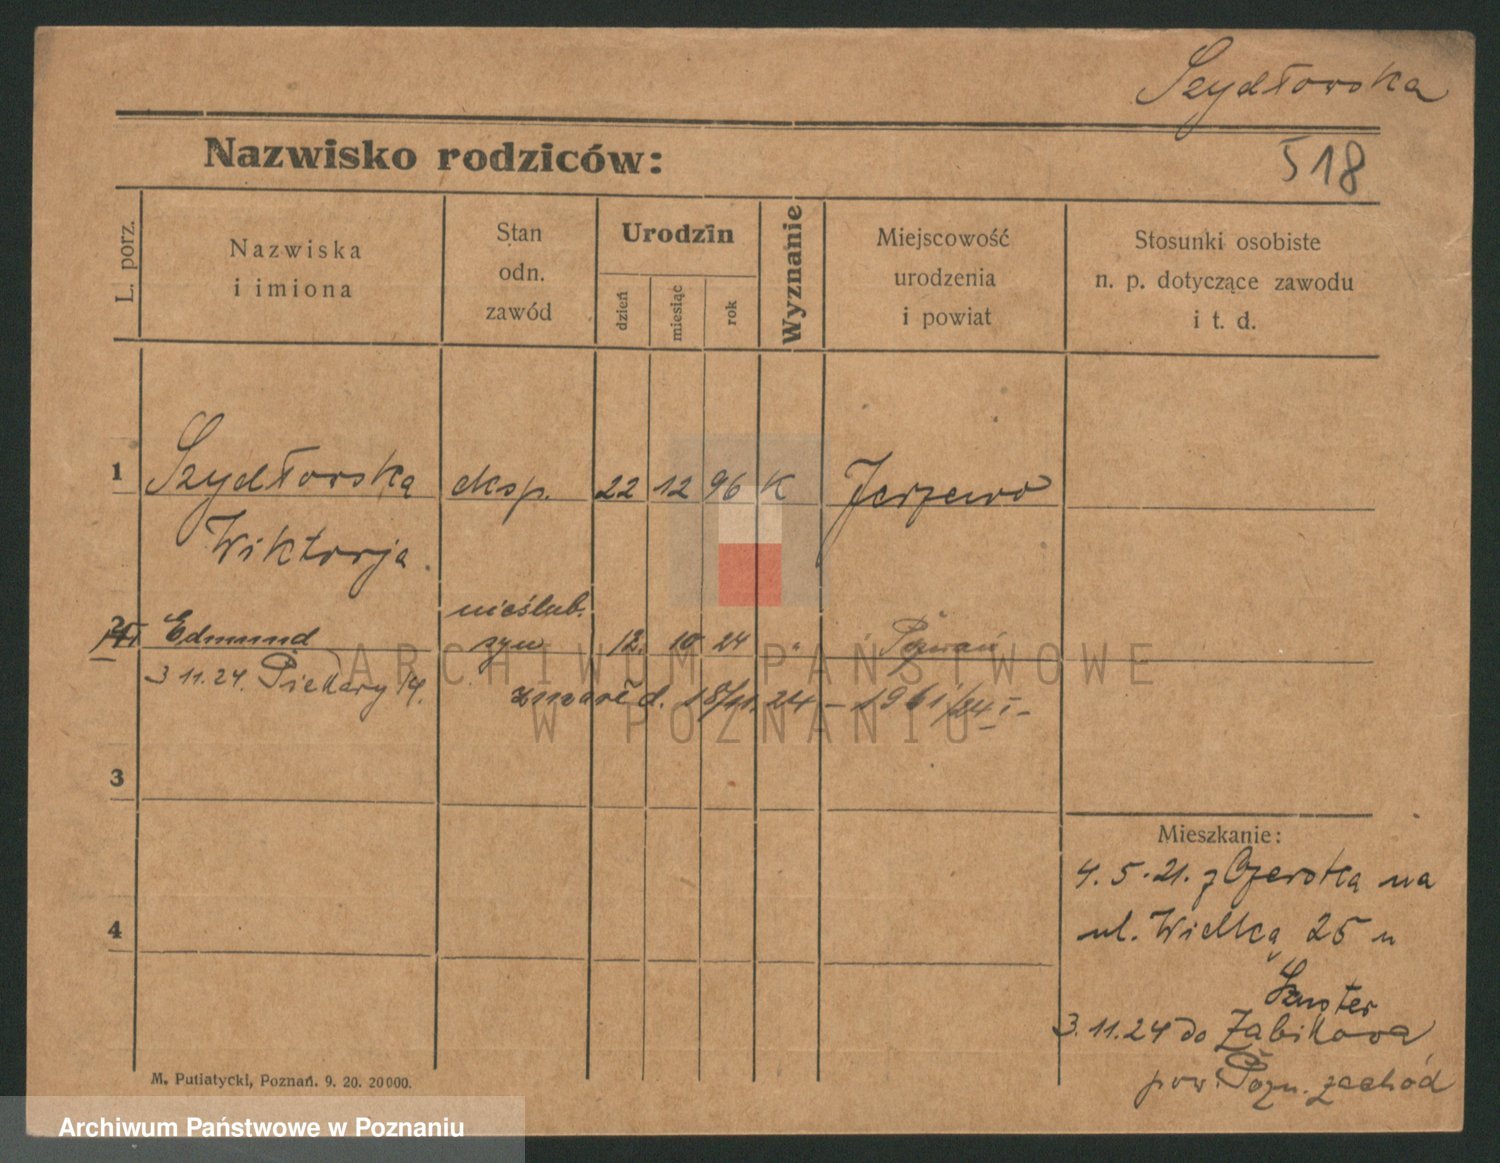 Szydłowska
518
Nazwisko rodziców:
L. porz.
Nazwiska
i imiona
Stan
odn.
zawód
Urodzin
dzień
miesiąc
rok
Wyznanie
Miejscowość
urodzenia
i powiat
Stosunki osobiste
n. p. dotyczące zawodu
i t. d.
1 Szydłowska eksp. 22 12 96 K Jerzewo
Wiktorja.
nieślub.
2 Edmund syn 12. 10 24 " Poznań
3 11. 24. Piekary 14.
zmarł d. 18/11. 24 – 1961/24 I –
3
4
Mieszkanie:
4. 5. 21. z Czerska na
ul. Wielką 25 u
Szuster
3. 11. 24 do Żabikowa
pow. Pozn. zachód
M. Putiatycki, Poznań. 9. 20. 20000.
ARCHIWUM PAŃSTWOWE
W POZNANIU
Archiwum Państwowe w Poznaniu